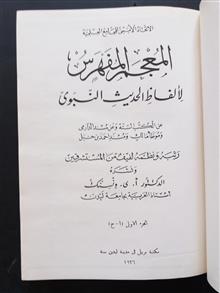 المعجم المفهرس
لألفاظ الحديث النبوي
عن الكتب الستة وعن مسند الدارمي
وموطأ مالك ومسند احمد بن حنبل
رتبه ونظمه لفيف من المستشرقين
ونشره
الدكتور أ. ى. ونسنك
استاذ العربية بجامعة ليدن
الجزء الاول (ا - ح)
مكتبة بريل فى مدينة ليدن سنة
١٩٣٦